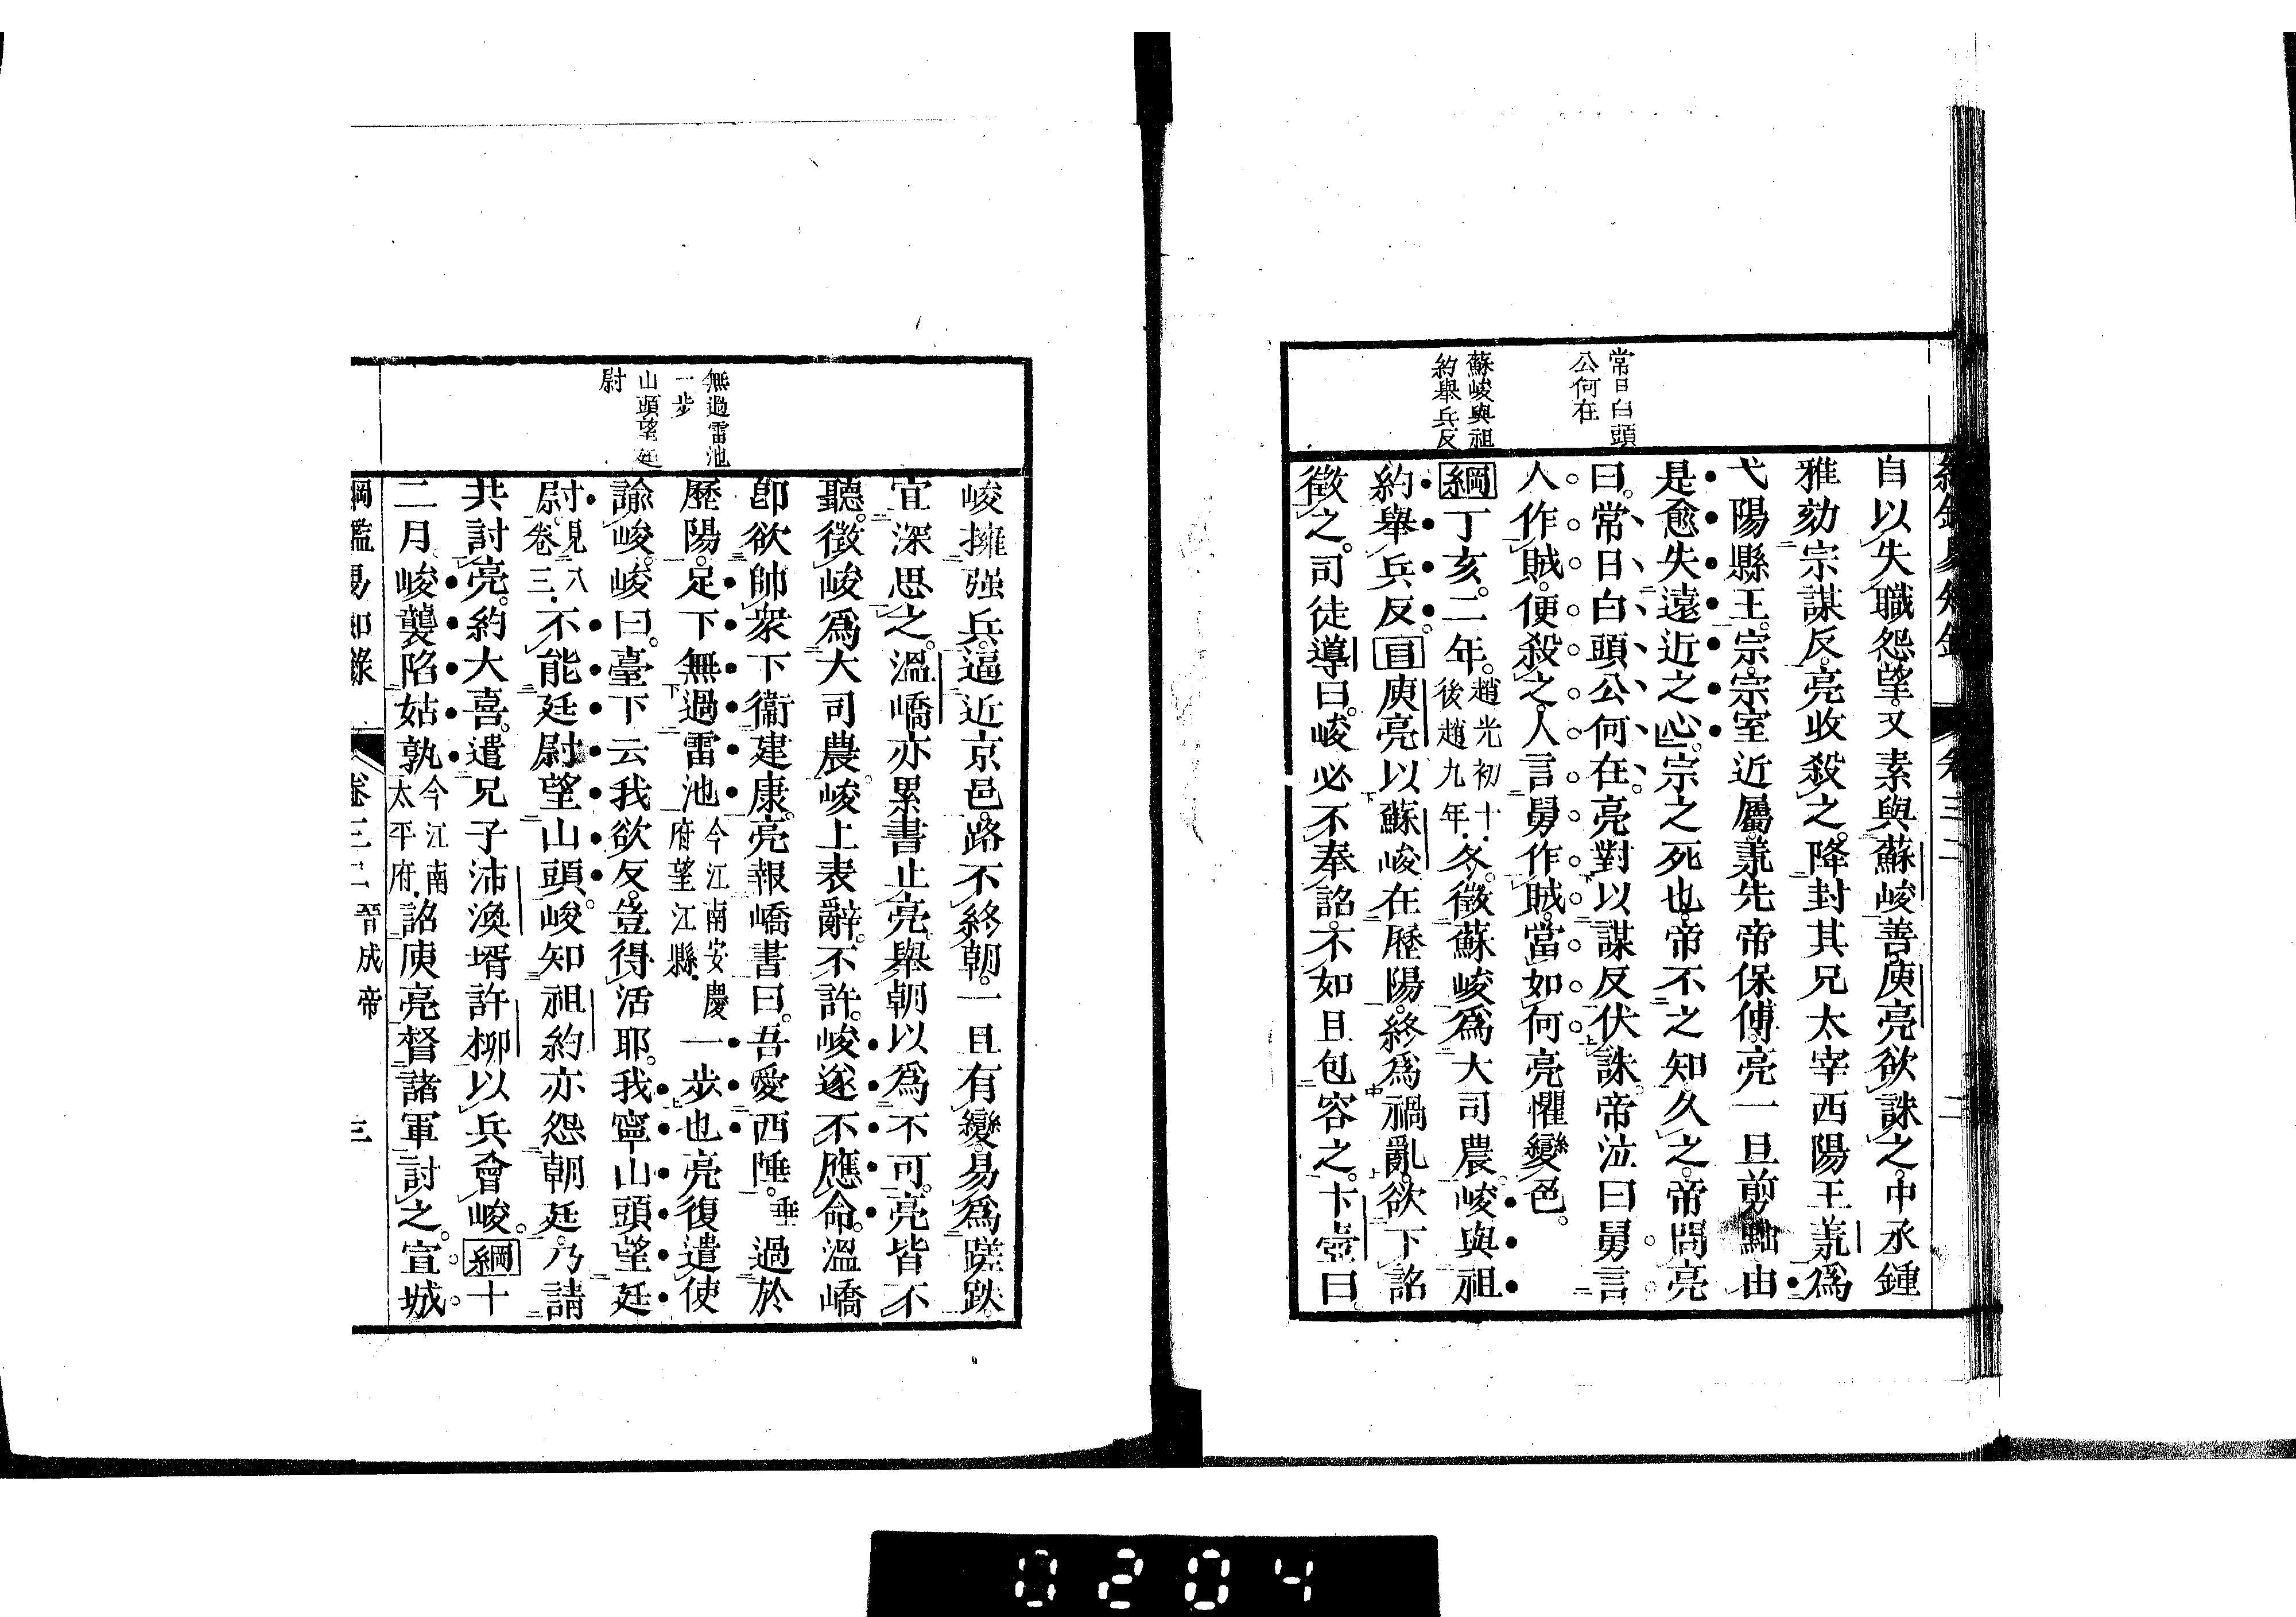 常日白頭
公何在
蘇峻與祖
約舉兵反
自以失職怨望又素與蘇峻善庾亮欲誅之中丞鍾
雅劾宗謀反亮收殺之降封其兄太宰西陽王羕爲
弋陽縣王宗宗室近屬羕先帝保傅亮一旦剪黜由
是愈失遠近之心宗之死也帝不之知久之帝問亮
曰常日白頭公何在亮對以謀反伏誅帝泣曰舅言
人作賊便殺之人言舅作賊當如何亮懼變色
綱丁亥二年趙光初十
後趙九年冬徵蘇峻爲大司農峻與祖
約舉兵反目庾亮以蘇峻在歷陽終爲禍亂欲下詔
徵之司徒導曰峻必不奉詔不如且包容之卞壼曰
無過雷池
一步
山頭望廷
尉
峻擁强兵逼近京邑路不終朝一旦有變易爲蹉跌
宜深思之溫嶠亦累書止亮舉朝以爲不可亮皆不
聽徵峻爲大司農峻上表辭不許峻遂不應命溫嶠
卽欲帥衆下衞建康亮報嶠書曰吾愛西陲垂過於
歷陽足下無過雷池今江南安慶
府望江縣一步也亮復遣使
諭峻峻曰臺下云我欲反豈得活耶我寧山頭望廷
尉見八
卷三不能廷尉望山頭峻知祖約亦怨朝廷乃請
共討亮約大喜遣兄子沛渙壻許柳以兵會峻綱十
二月峻襲陷姑孰今江南
太平府詔庾亮督諸軍討之宣城
綱鑑易知錄 卷三二 晉成帝 三
0204